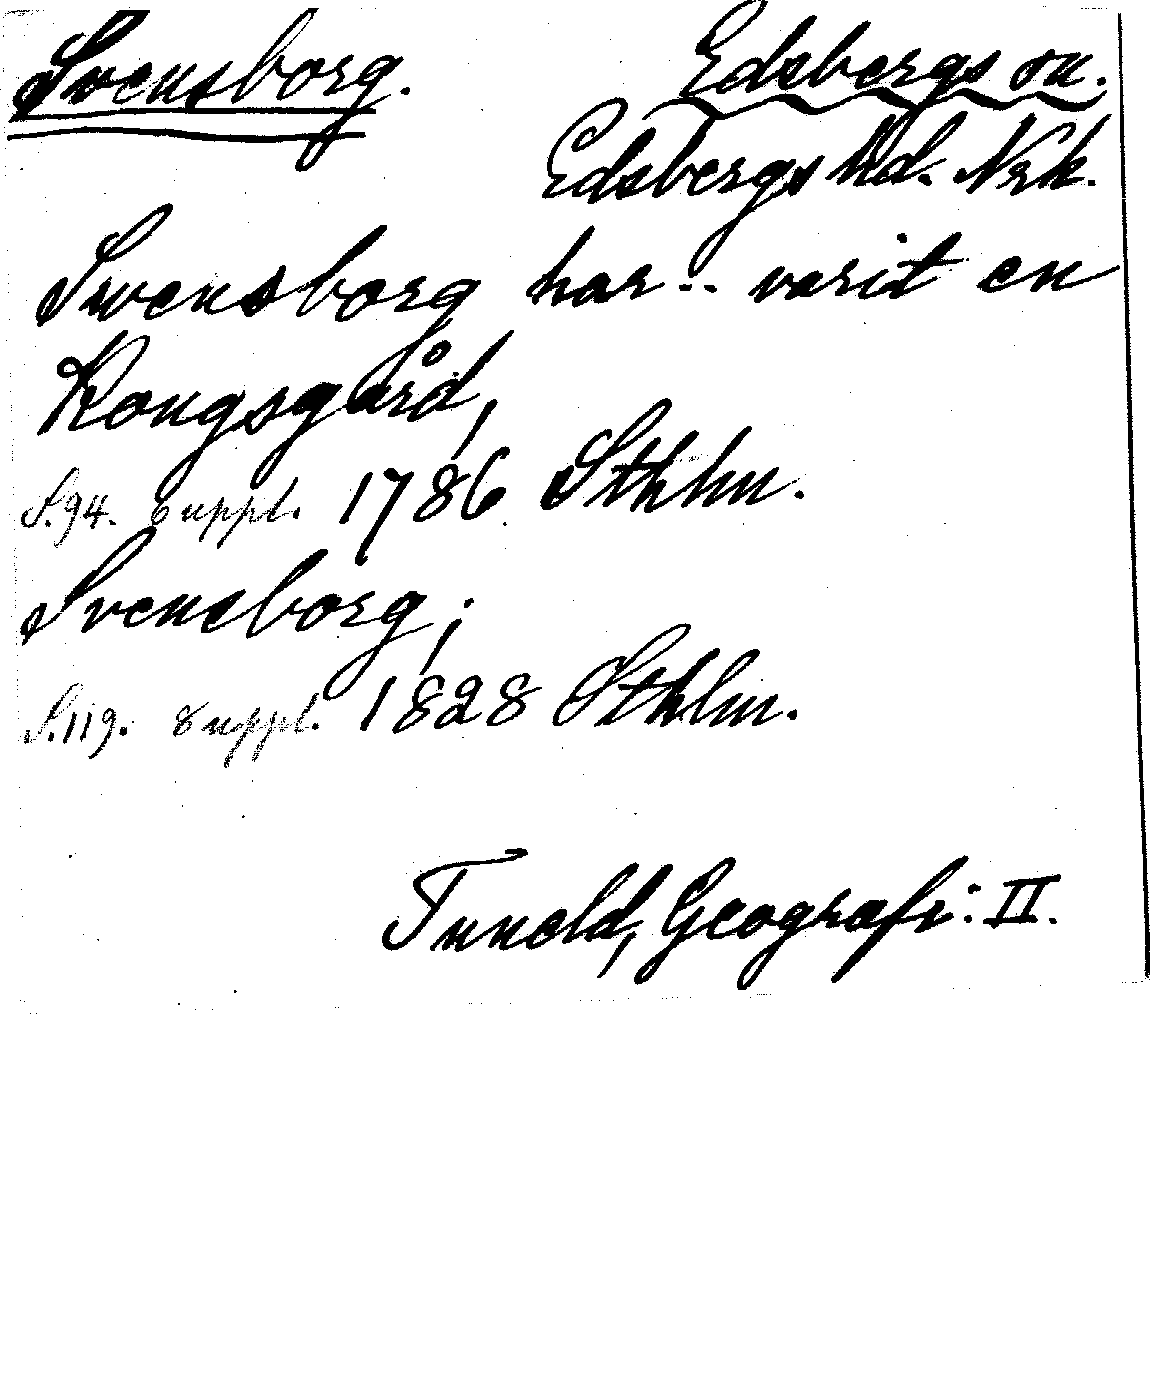 Svensborg. Edsbergs sn.
Edsbergs hd. Nrk.
Swensborg har .. varit en
Kongsgård,
S.94. suppl. 1786 Sthlm.
Svensborg;
S.119. suppl. 1828 Sthlm.
Tuneld, Geografi: II.